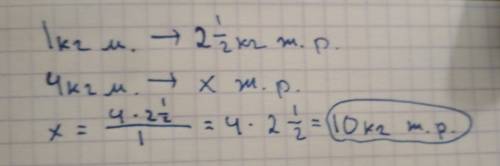 1кг м. → 2 1/2 кг ж.р.
4кг м. → х ж.р.
х = 4 · 2 1/2 / 1 = 4 · 2 1/2 = 10кг ж.р.